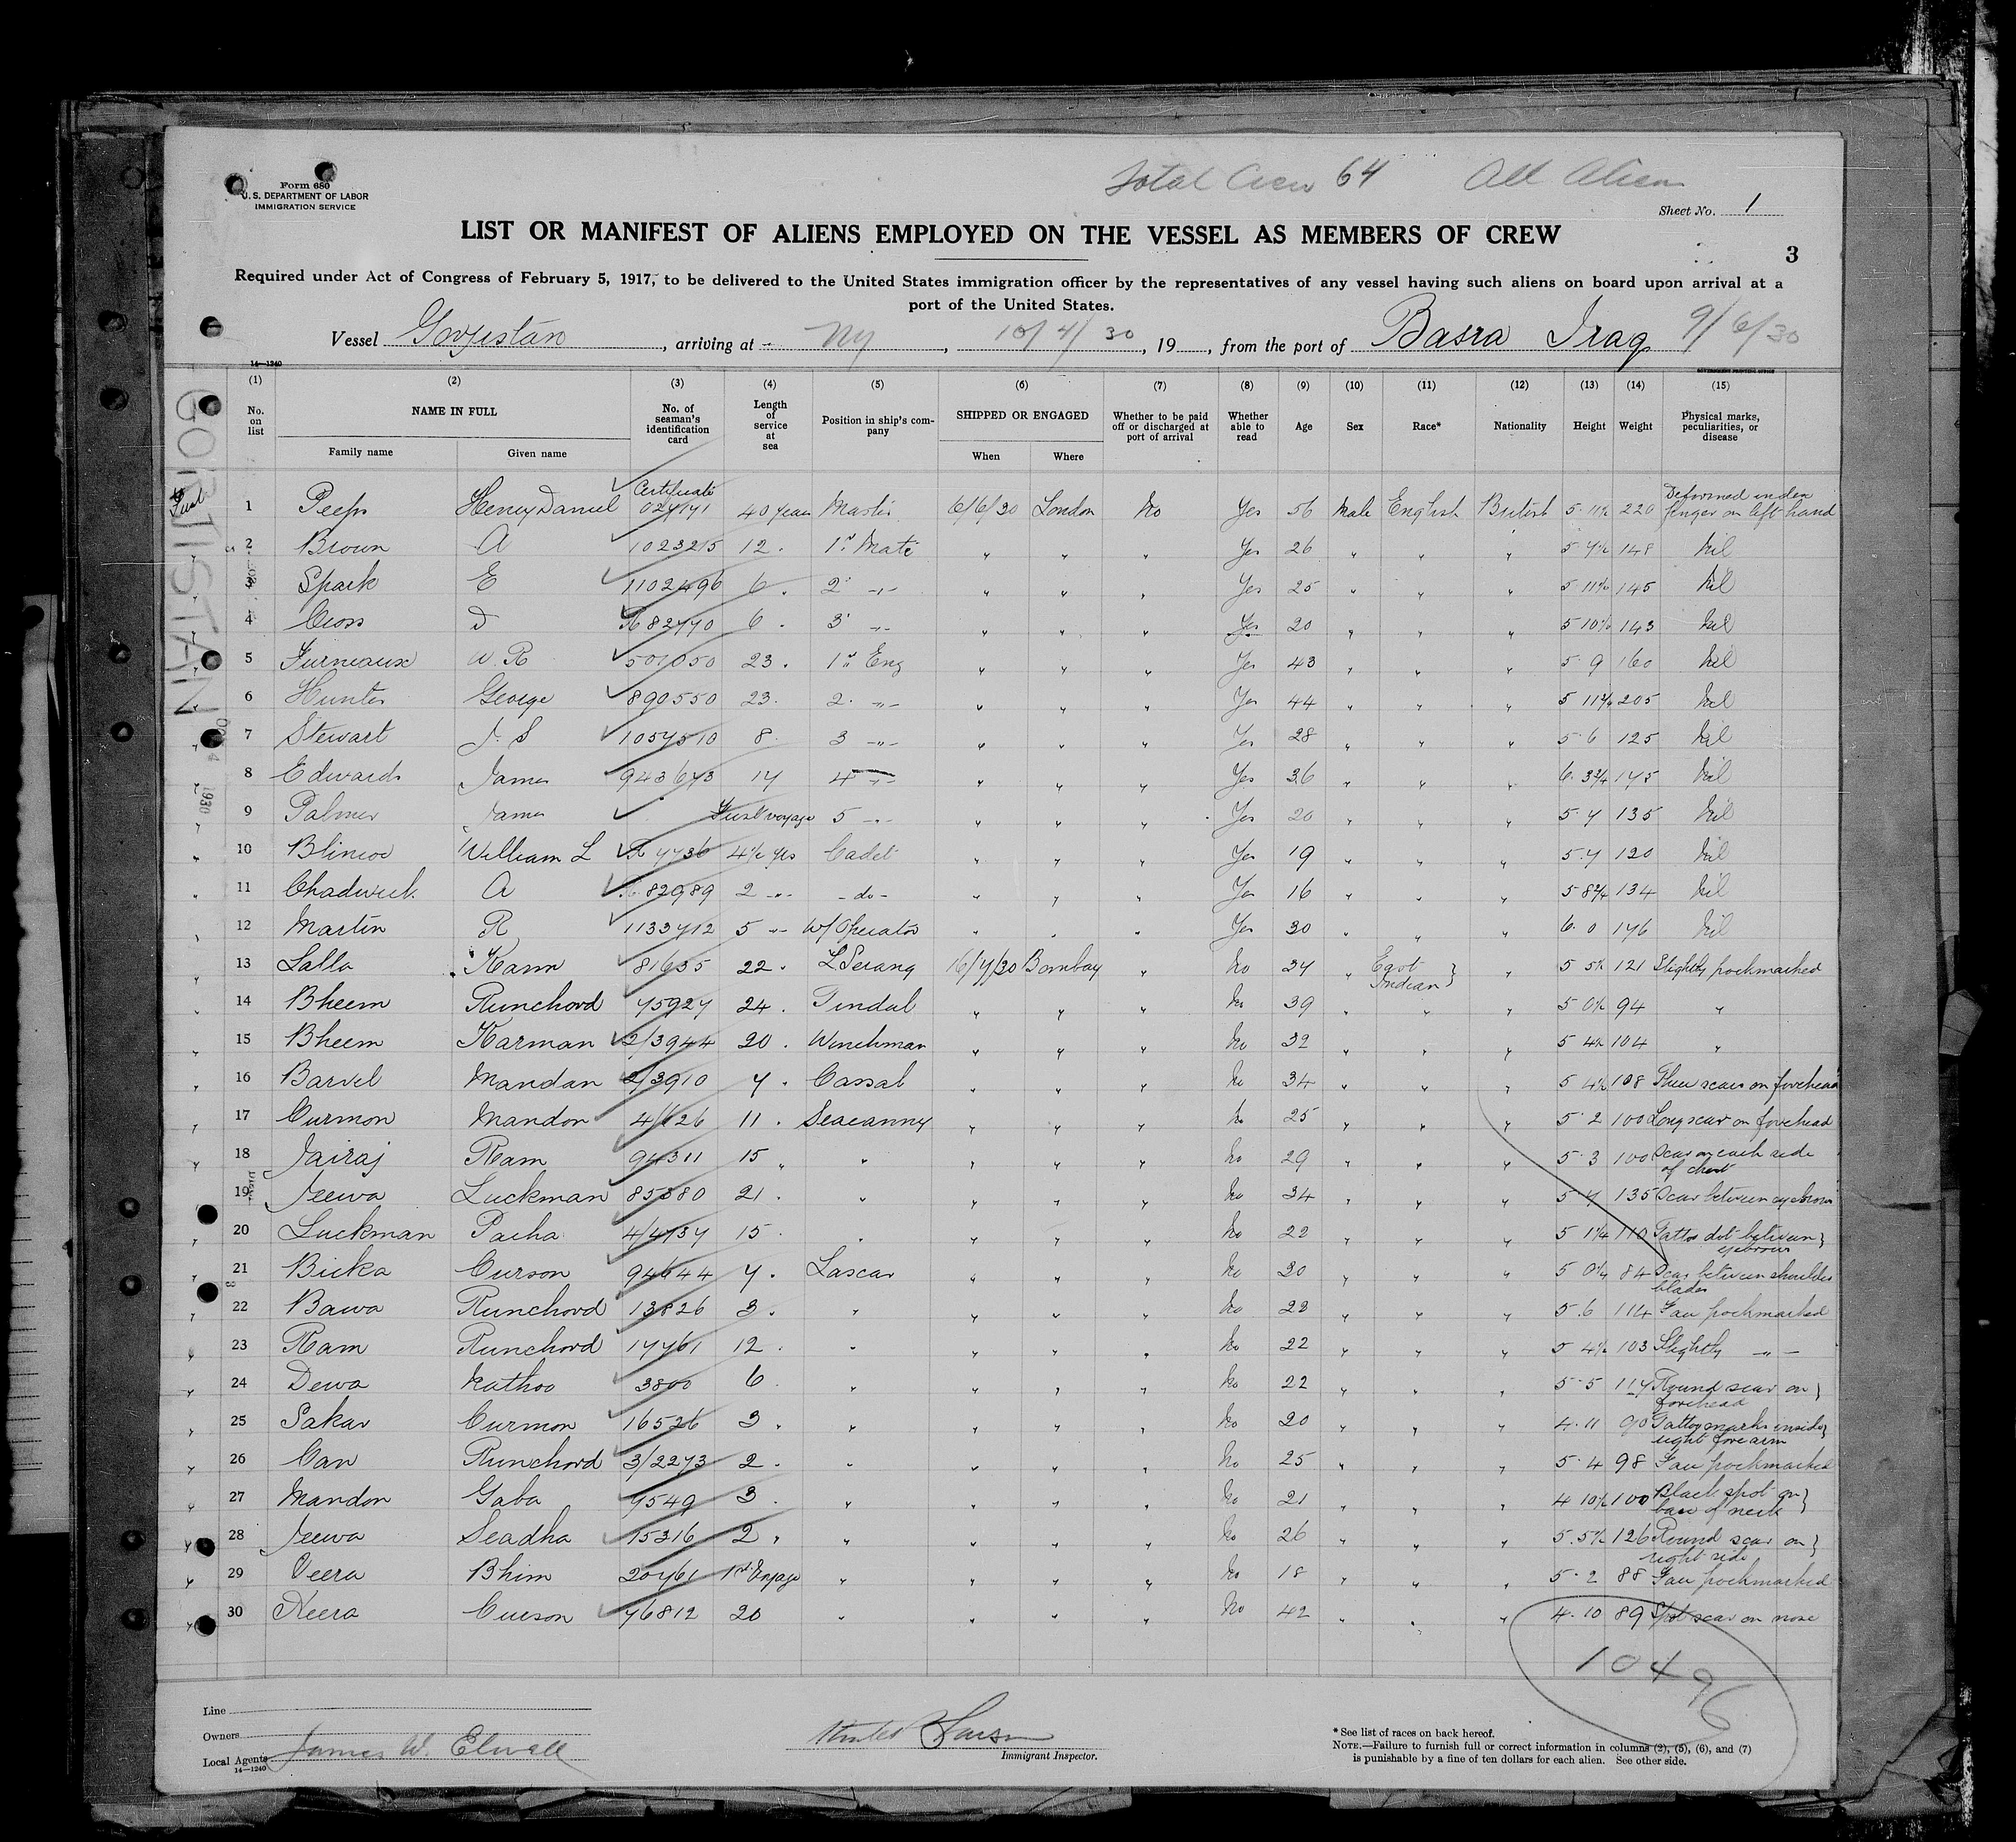 Total Crew 64 All Alien
Form 680
U. S. DEPARTMENT OF LABOR
IMMIGRATION SERVICE
Sheet No. 1
LIST OR MANIFEST OF ALIENS EMPLOYED ON THE VESSEL AS MEMBERS OF CREW
3
Required under Act of Congress of February 5, 1917, to be delivered to the United States immigration officer by the representatives of any vessel having such aliens on board upon arrival at a
port of the United States.
Vessel Gorjistan, arriving at NY, 10/4/30, 19, from the port of Basra Iraq 9/6/30
14—1240
GOVERNMENT PRINTING OFFICE
GORJISTAN
(1) (2) (3) (4) (5) (6) (7) (8) (9) (10) (11) (12) (13) (14) (15)
No. on list NAME IN FULL No. of seaman's identification card Length of service at sea Position in ship's company SHIPPED OR ENGAGED Whether to be paid off or discharged at port of arrival Whether able to read Age Sex Race* Nationality Height Weight Physical marks, peculiarities, or disease
Family name Given name When Where
1 Peeps Henry Daniel Certificate 027171 40 years Master 6/6/30 London No Yes 56 Male English British 5 11½ 220 Deformed index finger on left hand
2 Brown A 1023215 12 . 1st Mate " " " Yes 26 " " " 5 7½ 148 Nil
3 Spark E 1102496 6 . 2 -"- " " " Yes 25 " " " 5 11½ 145 Nil
4 Cross D R 82770 6 . 3 -"- " " " Yes 20 " " " 5 10½ 143 Nil
5 Furneaux W. R 501050 23 . 1st Eng " " " Yes 43 " " " 5 9 160 Nil
6 Hunter George 890550 23 . 2 -"- " " " Yes 44 " " " 5 11¾ 205 Nil
7 Stewart J. S 1057510 8 3 -"- " " " Yes 28 " " " 5 6 125 Nil
8 Edwards James 943673 17 4 -"- " " " Yes 36 " " " 6 3¾ 175 Nil
9 Palmer James First voyage 5 -"- " " " Yes 20 " " " 5 7 135 Nil
10 Blincoe William L R 7736 4½ yrs Cadet " " " Yes 19 " " " 5 7 120 Nil
11 Chadwick A R 82989 2 -"- -do- " " " Yes 16 " " " 5 8¾ 134 Nil
12 Martin R 1133712 5 -"- W/Operator " " " Yes 30 " " " 6 0 176 Nil
13 Lalla Kann 81635 22 . L Serang 16/7/30 Bombay " No 34 " East Indian } " 5 5½ 121 Slightly pockmarked
14 Bheem Runchord 75927 24 . Tindal " " " No 39 " " " 5 0½ 94 "
15 Bheem Karman 2/3944 20 . Winchman " " " No 32 " " " 5 4½ 104 "
16 Barvel Mandan 2/3910 7 . Cassab " " " No 34 " " " 5 4½ 108 Three scars on forehead
17 Curmon Mandon 4/626 11 . Seacunny " " " No 25 " " " 5 2 100 Long scar on forehead
18 Jairaj Ram 94311 15 " " " " " No 29 " " " 5 3 100 Scar on each side of chest
19 Jeewa Luckman 85380 21 . " " " " No 34 " " " 5 7 135 Scar between eyebrows
20 Luckman Pacha 4/4737 15 . " " " " No 22 " " " 5 1¼ 110 Tattoo dot between } eyebrows
21 Bicka Curson 94644 7 . Lascar " " " No 30 " " " 5 0¼ 84 Scar between shoulder blades
22 Bawa Runchord 13826 3 . " " " " No 22 " " " 5 6 114 Face pockmarked
23 Ram Runchord 17761 12 . " " " " No 22 " " " 5 4½ 103 Slightly -"-
24 Dewa Nathoo 3800 6 " " " " No 22 " " " 5 5 117 Round scar on } forehead
25 Sakar Curmon 16526 3 . " " " " No 20 " " " 4 11 90 Tattoo marks inside } right forearm
26 Can Runchord 3/2273 2 . " " " " No 25 " " " 5 4 98 Face pockmarked
27 Mandon Gaba 9549 3 . " " " " No 21 " " " 4 10½ 100 Black spot on } base of neck
28 Jeewa Seadha 15316 2 . " " " " No 26 " " " 5 5½ 126 Round scar on } right side
29 Veera Bhim 20761 1st Voyage " " " " No 18 " " " 5 2 88 Face pockmarked
30 Keera Curson 76812 20 " " " " No 42 " " " 4 10 89 Spot scar on nose
10496
Line
Owners
Local Agents James W. Elwell
14—1240
Immigrant Inspector.
* See list of races on back hereof.
NOTE.—Failure to furnish full or correct information in columns (2), (5), (6), and (7)
is punishable by a fine of ten dollars for each alien. See other side.